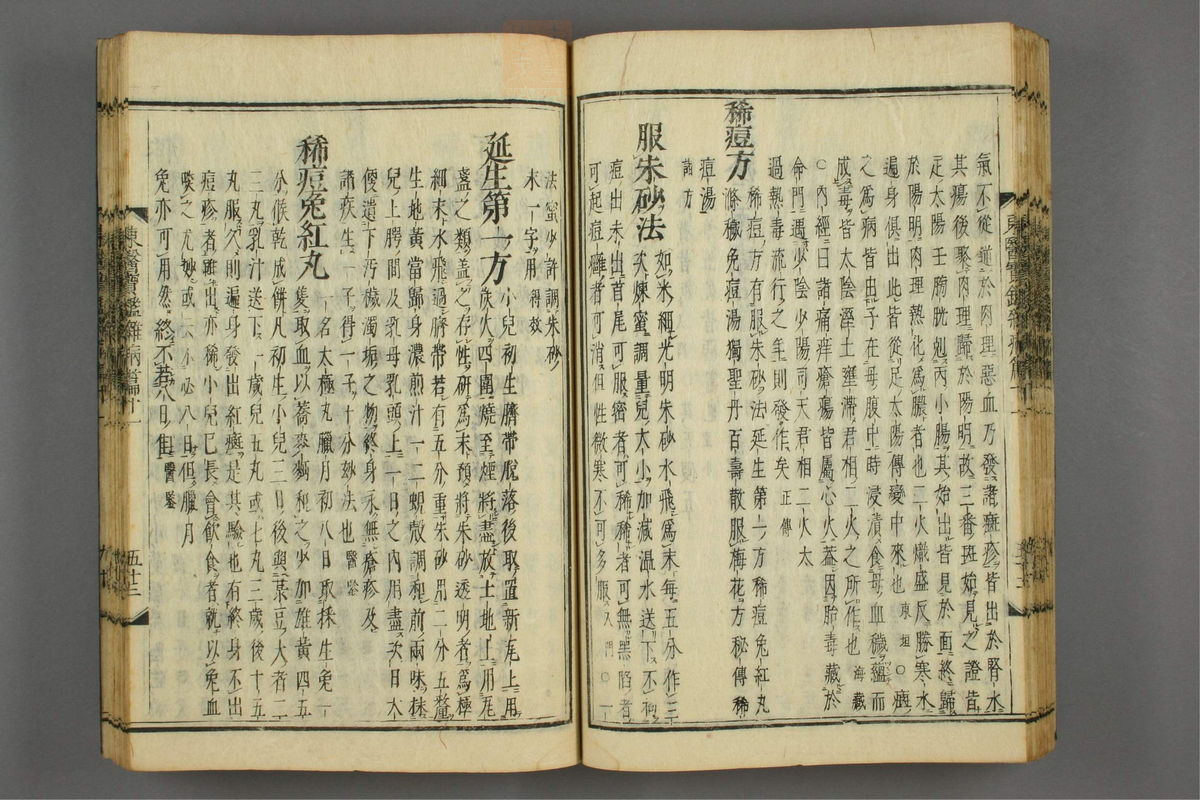 氣不從逆於肉理惡血乃發諸癍疹皆出於腎水
其瘍後聚肉理歸於陽明故三番斑始見之證皆
足太陽壬膀胱剋丙小腸其始出皆見於面終歸
於陽明肉理熱化爲膿者也二火熾盛反勝寒水
遍身俱出此皆從足太陽傳變中來也東垣○癍
之爲病皆由子在母腹中時浸漬食母血穢蘊而
成毒皆太陰濕土壅滯君相二火之所作也海藏
○內經曰諸痛痒瘡瘍皆屬心火蓋因胎毒藏於
命門遇少陰少陽司天君相二火太
過熱毒流行之年則發作矣正傳
稀痘方
稀痘方有服朱砂法延生第一方稀痘免紅丸
滌穢免痘湯獨聖丹百壽散服梅花方秘傳稀
痘湯
諸方
服朱砂法
如米細光明朱砂水飛爲末每五分作三
次煉蜜調量兒大小加減溫水送下不拘
痘出未出首尾可服密者可稀稀者可無黑陷者
可起痘癰者可消但性微寒不可多服入門○一
法蜜少許調朱砂
末一字用得效
延生第一方
小兒初生臍帶脫落後取置新瓦上用
炭火四圍燒至煙將盡放土地上用瓦
盞之類盖之存性硏爲末預將朱砂透明者爲極
細末水飛過臍帶若有五分重朱砂用二分五釐
生地黃當歸身濃煎汁一二蜆殼調和前兩味抹
兒上腭間及乳母乳頭上一日之內用盡次日大
便遺下汚穢濁垢之物終身永無瘡疹及
諸疾生一子得一子十分妙法也醫鑒
稀痘免紅丸
一名太極丸臘月初八日取採生兔一
隻取血以蕎麥麪和之少加雄黃四五
分候乾成餠凡初生小兒三日後與菉豆大者二
三丸乳汁送下一歲兒五丸或七丸三歲後十五
丸服久則遍身發出紅癍是其驗也有終身不出
痘疹者雖出亦稀小兒已長會飮食者就以兔血
啖之尤妙或云不必八日但臘月
兔亦可用然終不若八日佳醫鑒
東醫寶鑑雜病篇十一
五十三